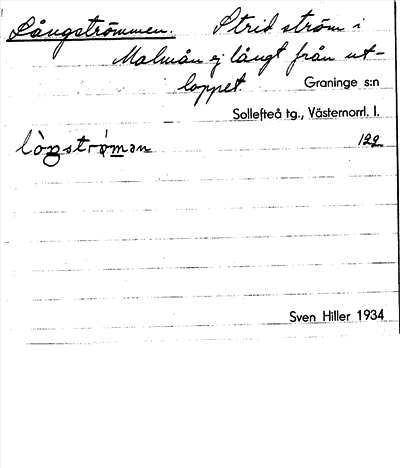 Långströmmen. Strid ström i
Malmån ej långt från ut-
loppet. Graninge s:n
Sollefteå tg., Västernorrl. l.
lòŋstrø̀man 122
Sven Hiller 1934